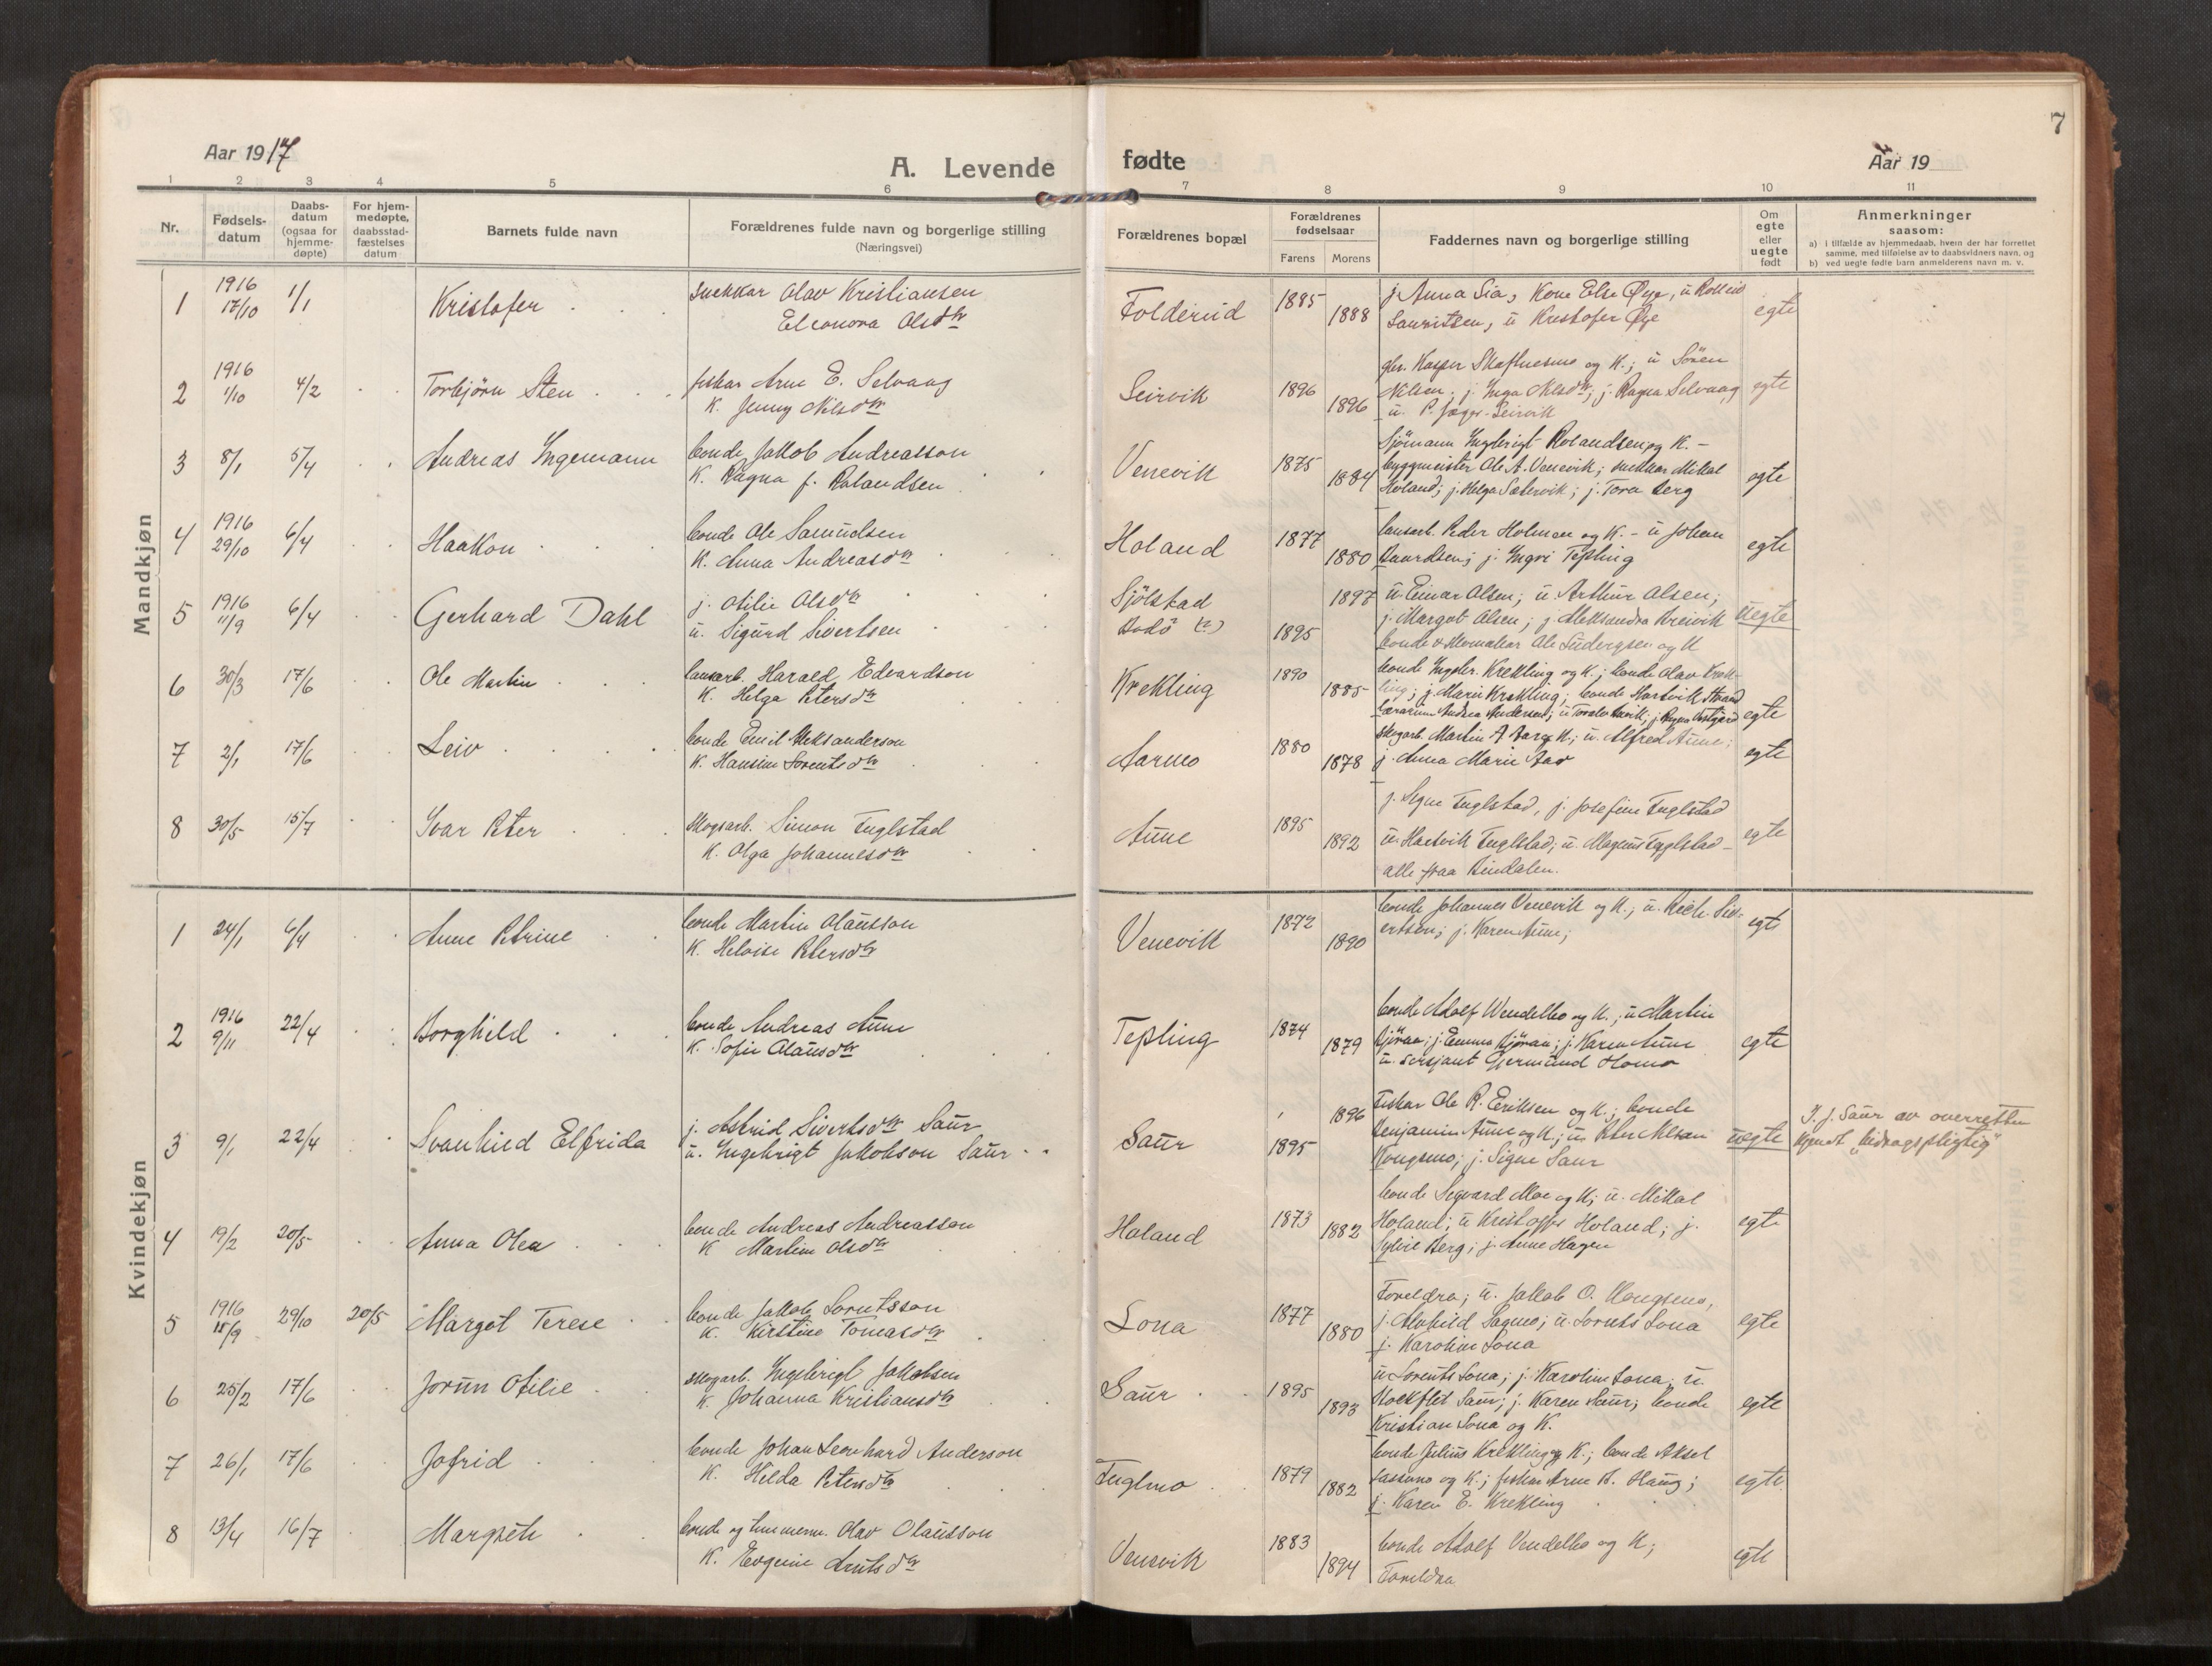 Aar 1917
A. Levende
fødte
Aar 19
7
1 2 3 4 5 6 7 8 9 10 11
Nr.
Fødsels-
datum
Daabs-
datum
(ogsaa for
hjemme-
døpte)
For hjem-
medøpte,
daabsstad-
fæstelses
datum
Barnets fulde navn
Forældrenes fulde navn og borgerlige stilling
(Næringsvei)
Forældrenes bopæl
Forældrenes
fødselsaar
Farens Morens
Faddernes navn og borgerlige stilling
Om
egte
eller
uegte
født
Anmerkninger
saasom:
a) i tilfælde av hjemmedaab, hvem der har forrettet
samme, med tilføielse av to daabsvidners navn, og
b) ved uegte fødte barn anmelderens navn m. v.
Mandkjøn
1 1916 17/10 1/1 Kristofer
snekkar Olav Kristiansen
Eleonora Olsdtr
Foldereid 1885 1888
j. Anna Sia, Kone Else Øye, u
Lauritsen, u Kristofer Øye
egte
2 1916 1/10 4/2 Torbjörn Sten
fiskar Arne E. Selvaag
K. Jenny Nilsdtr
Seirvik 1896 1896
Kasper og K.; u Sören
Nilsen; j. Inga Nilsdtr; j. Ragna Selvaag
u. P. Seirvik
egte
3 8/1 5/4 Andreas Ingemann
bonde Jakob Andreasson
K. Ragna f. Rolandsen
Venevik 1875 1884
Sjömann Ingbrigt Rolandsen og K. -
byggmeister Ole A. Venevik; snekkar Mikal
Holand; j. Helga Sætervik; j. Tora Berg
egte
4 1916 29/10 6/4 Haakon
bonde Ole Samuelsen
K. Anna Andreasdtr
Holand 1877 1880
Peder Holman og K. - u Johan
j. Ingri Tepling
egte
5 1916 11/9 6/4 Gerhard Dahl
j. Otilie Olsdtr
u. Sigurd Sivertsen
Sjölstad
Bodö (?)
1895 1897
u. Einar Olsen; u. Arthur Olsen;
j. Margot Olsen; j. Aleksandra Kreivik
bonde Ole og K
uegte
6 30/3 17/6 Ole Martin
Harald Edvardson
K. Helga Petersdtr
Krekling 1890 1885
bonde Ingbr. Krekling og K.; bonde Olav Krek-
ling; j. Marie Krekling; bonde Hartvik Strand
Lærarinne Andrea Andersen; u j. Ragna
egte
7 2/1 17/6 Leiv
bonde Emil Aleksanderson
K. Hansine Lorentsdtr
Aarmo 1880 1878
skogarb. Martin A K; u. Alfred Aune;
j. Anna Marie Aar
egte
8 30/5 15/7 Ivar Peter
skogsarb. Simon Fuglstad
K. Olga Johannesdtr
Aune 1895 1892
j. Signe Fuglstad, j. Josefine Fuglstad
u. Hartvik Fuglstad; u. Magnus Fuglstad -
alle fraa Bindalen.
egte
Kvindekjøn
1 24/1 6/4 Anne Petrine
bonde Martin Olausson
K. Heloise Petersdtr
Venevik 1872 1890
bonde Johannes Venevik og K.; u. Siv-
ertson; j. Karen Aune;
egte
2 1916 9/11 22/4 Borghild
bonde Andreas Aune
K. Sofie Olausdtr
Tepling 1874 1879
bonde Adolf Wendelbo og K.; u Martin
j. Emma j. Karen Aune
u. sersjant Gjermund Homo
egte
3 9/1 22/4 Svanhild Elfrida
j. Astrid Sivertsdtr Saur
u. Ingebrigt Jakobson Saur
Saur 1895 1896
Fiskar Ole R. Eriksen og K.; bonde
Benjamin Aune og K.; u. Peter Nilsen
Kongsmo; j. Signe Saur
uegte
I. J. Saur av overretten
kjent "bidragspligtig"
4 19/2 20/5 Anna Olea
bonde Andreas Andreassen
K Martine Olsdtr
Holand 1873 1882
bonde Sigvard Moe og K; u. Mikal
Holand; u Kristoffer Holand; j.
Sylvie Berg; j. Anne Hagen
egte
5 1916 29/10 20/5 Margot Terese
bonde Jakob Lorntsson
K. Kirstine Tomasdtr
Lona 1877 1880
Foreldra; u. Jakob O. Kongsmo,
j. Alvhild Sagmo; u. Lornts Lona
j. Karoline Lona
egte
6 25/2 17/6 Jorun Otilie
skogarb. Ingebrigt Jakobsen
K. Johanna Kristiansdtr
Saur 1895 1893
u Lornts Lona; j. Karoline Lona; u.
Stockflet Saur; j. Karen Saur; bonde
Kristian Lona og K.
egte
7 26/1 17/6 Jofrid
bonde Johan Leonhard Anderson
K. Hilda Petersdtr
Fuglmo 1879 1882
bonde Julius Krekling og K.; bonde Aksel
og K.; fiskar Arne A. Haug;
j. Karen E. Krekling
egte
8 13/4 16/7 Margrete
bonde og tømmerm. Olav Olausson
K. Evgenie Arntsdtr
Venevik 1883 1894
bonde Adolf Vendelbo og K;
Foreldra
egte